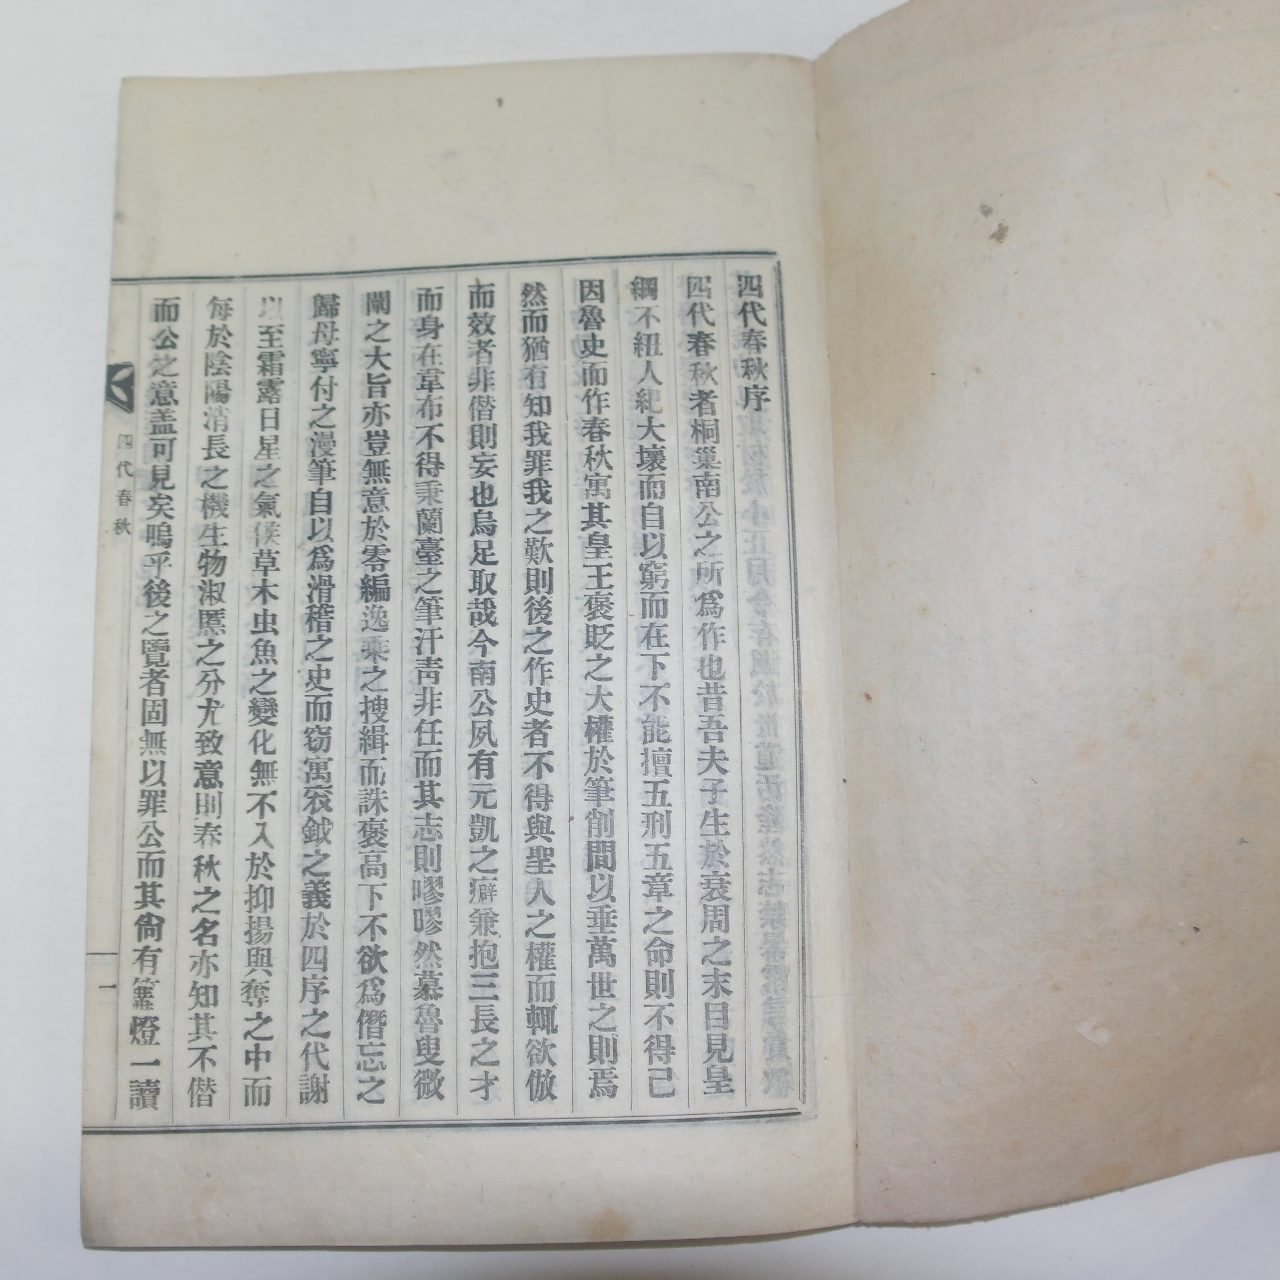 四代春秋序
四代春秋者桐巢南公之所爲作也昔吾夫子生於衰周之末目見皇
綱不紐人紀大壞而自以窮而在下不能擅五刑五章之命則不得已
因魯史而作春秋寓其皇王褒貶之大權於筆削間以垂萬世之則焉
然而猶有知我罪我之歎則後之作史者不得與聖人之權而輒欲倣
而效者非僭則妄也烏足取哉今南公夙有元凱之癖兼抱三長之才
而身在韋布不得秉蘭臺之筆汗靑非任而其志則嘐嘐然慕魯叟微
闡之大旨亦豈無意於零編逸乘之搜緝而誅褒高下不欲爲僭忘之
歸母寧付之漫筆自以爲滑稽之史而窃寓袞鉞之義於四序之代謝
以至霜露日星之氣候草木虫魚之變化無不入於抑揚與奪之中而
每於陰陽消長之機生物淑慝之分尤致意則春秋之名亦知其不僭
而公之意盖可見矣嗚乎後之覽者固無以罪公而其尙有籌燈一讀
四代春秋
一